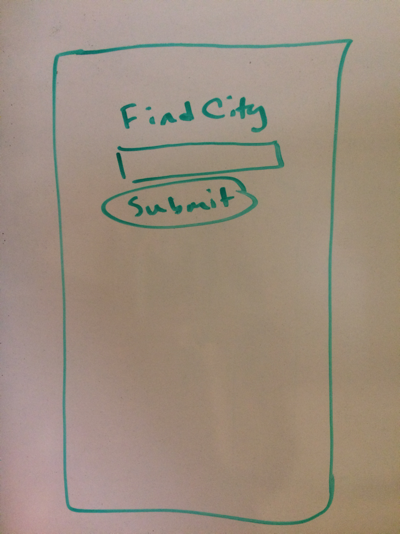 Find City
Submit